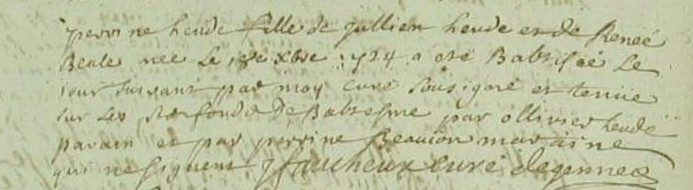 perrine heude fille de jullien heude et de Reneé
Beale nee Le xbre 1724 a eté Babtisée Le
jour suivant par moy curé sousigné et tenüe
sur Les st fonds De Babtesme par ollivier heude
parain et par perrine Beaucion maraine
qui ne signent J faucheux curé de gennes